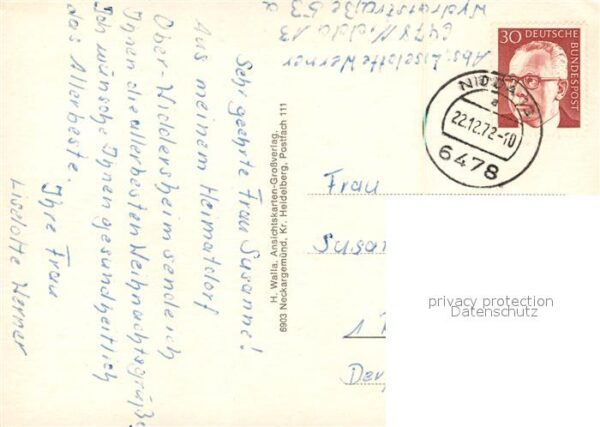 Abs. Liselotte Werner
6478 Nidda 13
30 DEUTSCHE
BUNDESPOST
NIDDA 13
a
22.12.72-10
6478
Sehr geehrte Frau Susanne!
Aus meinem Heimatdorf
Ober-Widdersheim sende ich
Ihnen die allerbesten Weihnachtsgrüße
Ich wünsche Ihnen gesundheitlich
das Allerbeste.
Ihre Frau
Liselotte Werner
H. Walla, Ansichtskarten-Großverlag,
6903 Neckargemünd, Kr. Heidelberg, Postfach 111
Frau
Susan
1
privacy protection
Datenschutz